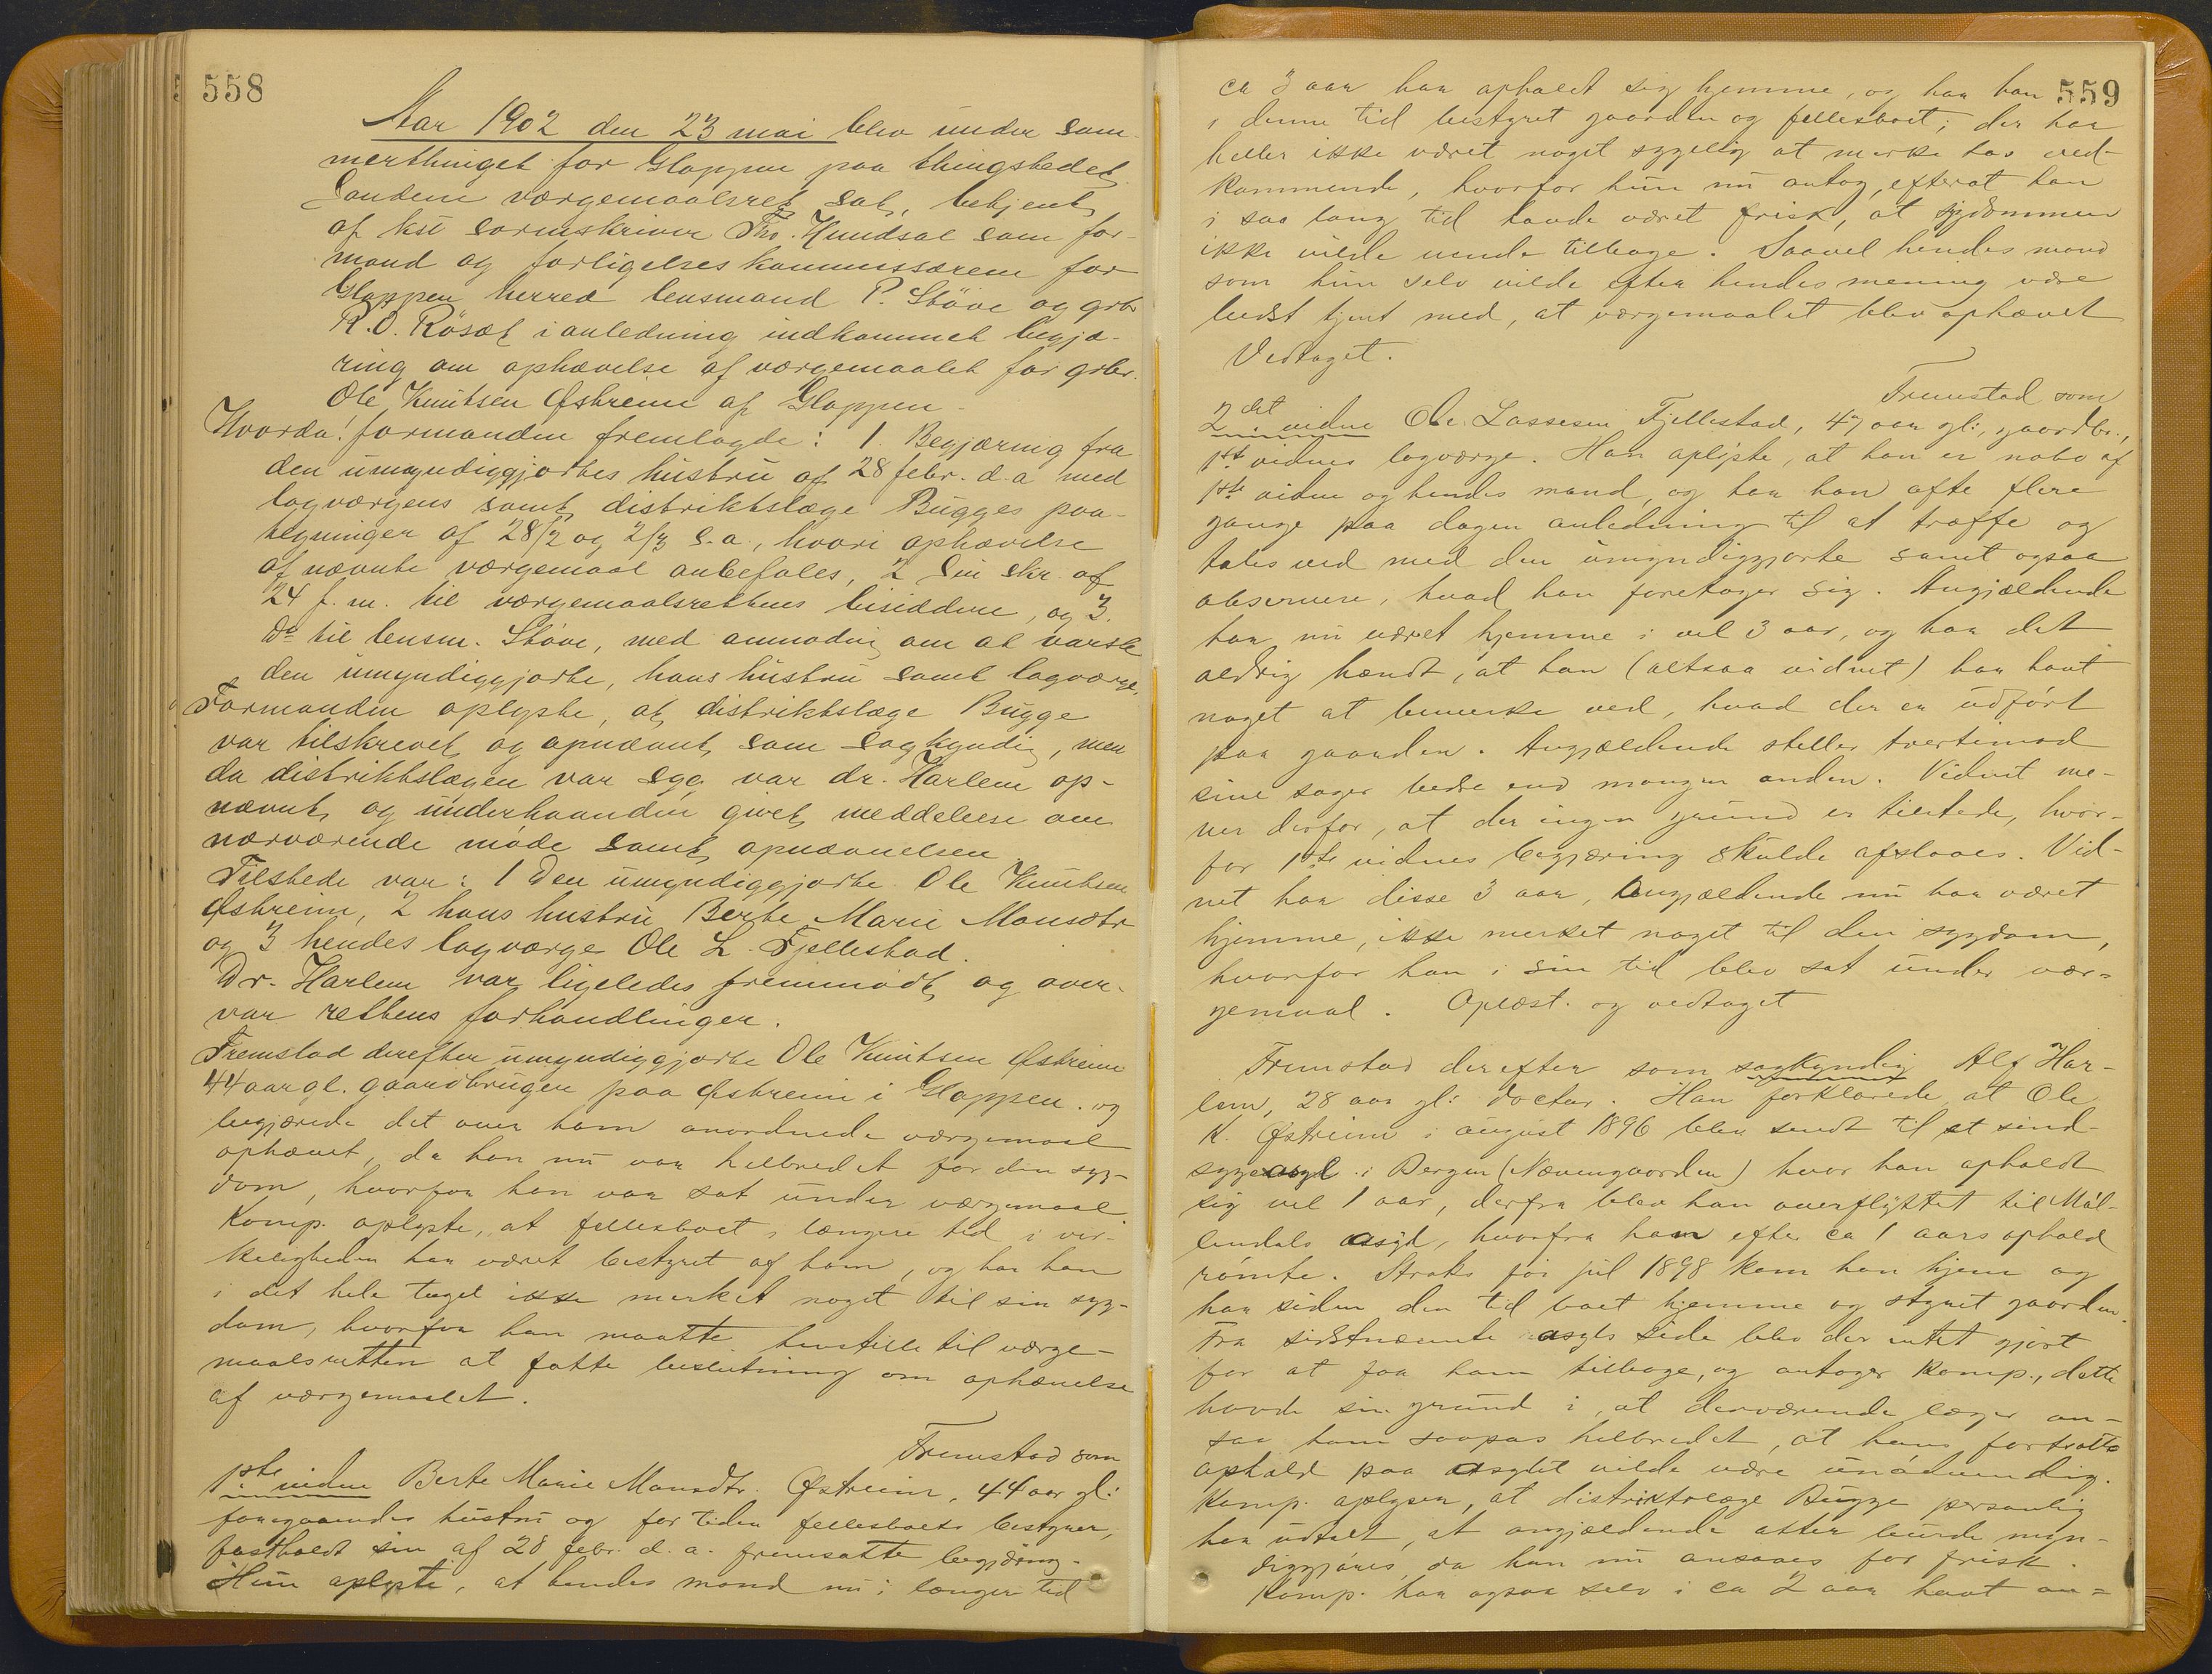 558
Aar 1902 den 23 mai blev under som-
merthinget for Gloppen paa thingstedet
Sandene værgemaalsret sat, betjent
af kst sorenskriver Ths. Hundsal som for-
mand og forligelseskommissærene for
Gloppen herred lensmand P. Støve og grbr
R. O. Røsæt i anledning indkommet begjæ-
ring om ophævelse af værgemaalet for grbr.
Ole Knutsen Østreim af Gloppen
Hvorda! formanden fremlagde: 1. Begjæring fra
den umyndiggjortes hustru af 28 febr. d.a med
lagværgens samt distriktslæge Bugges paa-
tegninger af 28/2 og 2/3 s.a., hvori ophævelse
af nævnte værgemaal anbefales, 2 Sin skr. af
24 f.m. til værgemaalsrettens bisiddere, og 3.
Do til lensm. Støve, med anmodnig om at varsle
den umyndiggjorte, hans hustru samt lagværge.
Formanden oplyste, at distriktslæge Bugge
var tilskrevet og opnævnt som sagkyndig, men
da distriktslægen var syg var dr. Harlem op-
nævnt og underhaanden givet meddelelse om
nærværende møde samt opnævnelsen
Tilstede var: 1 Den umyndiggjorte Ole Knutsen
Østreim, 2 hans hustru Berte Marie Monsdtr
og 3 hendes lagværge Ole L. Fjellestad.
Dr. Harlem var ligeledes fremmødt og over-
var rettens forhandlinger.
Fremstod derefter umyndiggjorte Ole Knutsen Østreim
44 aar gl. gaardbruger paa Østreim i Gloppen. og
begjærede det over ham anordnede værgemaal
ophævet, da han nu var helbredet for den syg-
dom, hvorfor han var sat under værgemaal.
Komp. oplyste, at fellesboet i længere tid i vir-
keligheden har været bestyret af ham, og har han
i det hele taget ikke merket noget til sin syg-
dom, hvorfor han maatte henstille til værge-
maalsretten at fatte beslutning om ophævelse
af værgemaalet.
Fremstod som
1ste vidne Berte Marie Monsdtr. Østreim, 44 aar gl:
foregaaendes hustru og for tiden fellesboets bestyrer,
fastholdt sin af 28 febr. d.a. fremsatte begjæring.
Hun oplyste, at hendes mand nu i længer tid
559
ca 3 aar har opholdt sig hjemme, og har han
i denne tid bestyret gaarden og fellesboet; der har
heller ikke været noget sygelig at merke hos ved-
kommende, hvorfor hun nu antog, efterat han
i saa lang tid havde været frisk, at sygdommen
ikke vilde vende tilbage. Saavel hendes mand
som hun selv vilde efter hendes mening være
bedst tjent med, at værgemaalet blev ophævet
Vedtaget.
Fremstod som
2det vidne Ole Lassesen Fjellestad, 47 aar gl:, gaardbr.,
1ste vidnes lagværge. Han oplyste, at han er nabo af
1ste vidne og hendes mand, og har han ofte flere
gange paa dagen anledning til at træffe og
tales ved med den umyndiggjorte samt ogsaa
observere, hvad han foretager sig. Angjældende
har nu været hjemme i vel 3 aar, og har det
aldrig hændt, at han (altsaa vidnet) har havt
noget at bemerke ved, hvad der er udført
paa gaarden. Angjældende steller tvertimod
sine sager bedre end mangen anden. Vidnet me-
ner derfor, at der ingen grund er tilstede, hvor-
for 1ste vidnes begjæring skulde afslaaes. Vid-
net har disse 3 aar, angjældende nu har været
hjemme, ikke merket noget til den sygdom,
hvorfor han i sin tid blev sat under vær-
gemaal. Oplæst. og vedtaget
Fremstod derefter som sagkyndig Alf Har-
lem, 28 aar gl: doctor. Han forklarede at Ole
K. Østreim i august 1896 blev sendt til et sind-
sygeasyl i Bergen (Nævengaarden) hvor han opholdt
sig vel 1 aar, derfra blev han overflyttet til Møl-
lendals asyl, hvorfra han efter ca 1 aars ophold
rømte. Straks før jul 1898 kom han hjem og
har siden den tid boet hjemme og styret gaarden.
Fra sidstnævnte asyls side blev der intet gjort
for at faa ham tilbage, og antager Komp., dette
havde sin grund i, at derværende læger an-
saa ham saapas helbredet, at hans fortsatte
ophold paa asylet vilde være unødvendig.
Komp. oplyser, at distriktslæge Bugge personlig
har udtalt, at angjældende atter burde myn-
diggjøres, da han nu ansaaes for frisk.
Komp. har ogsaa selv i ca 2 aar havt an-